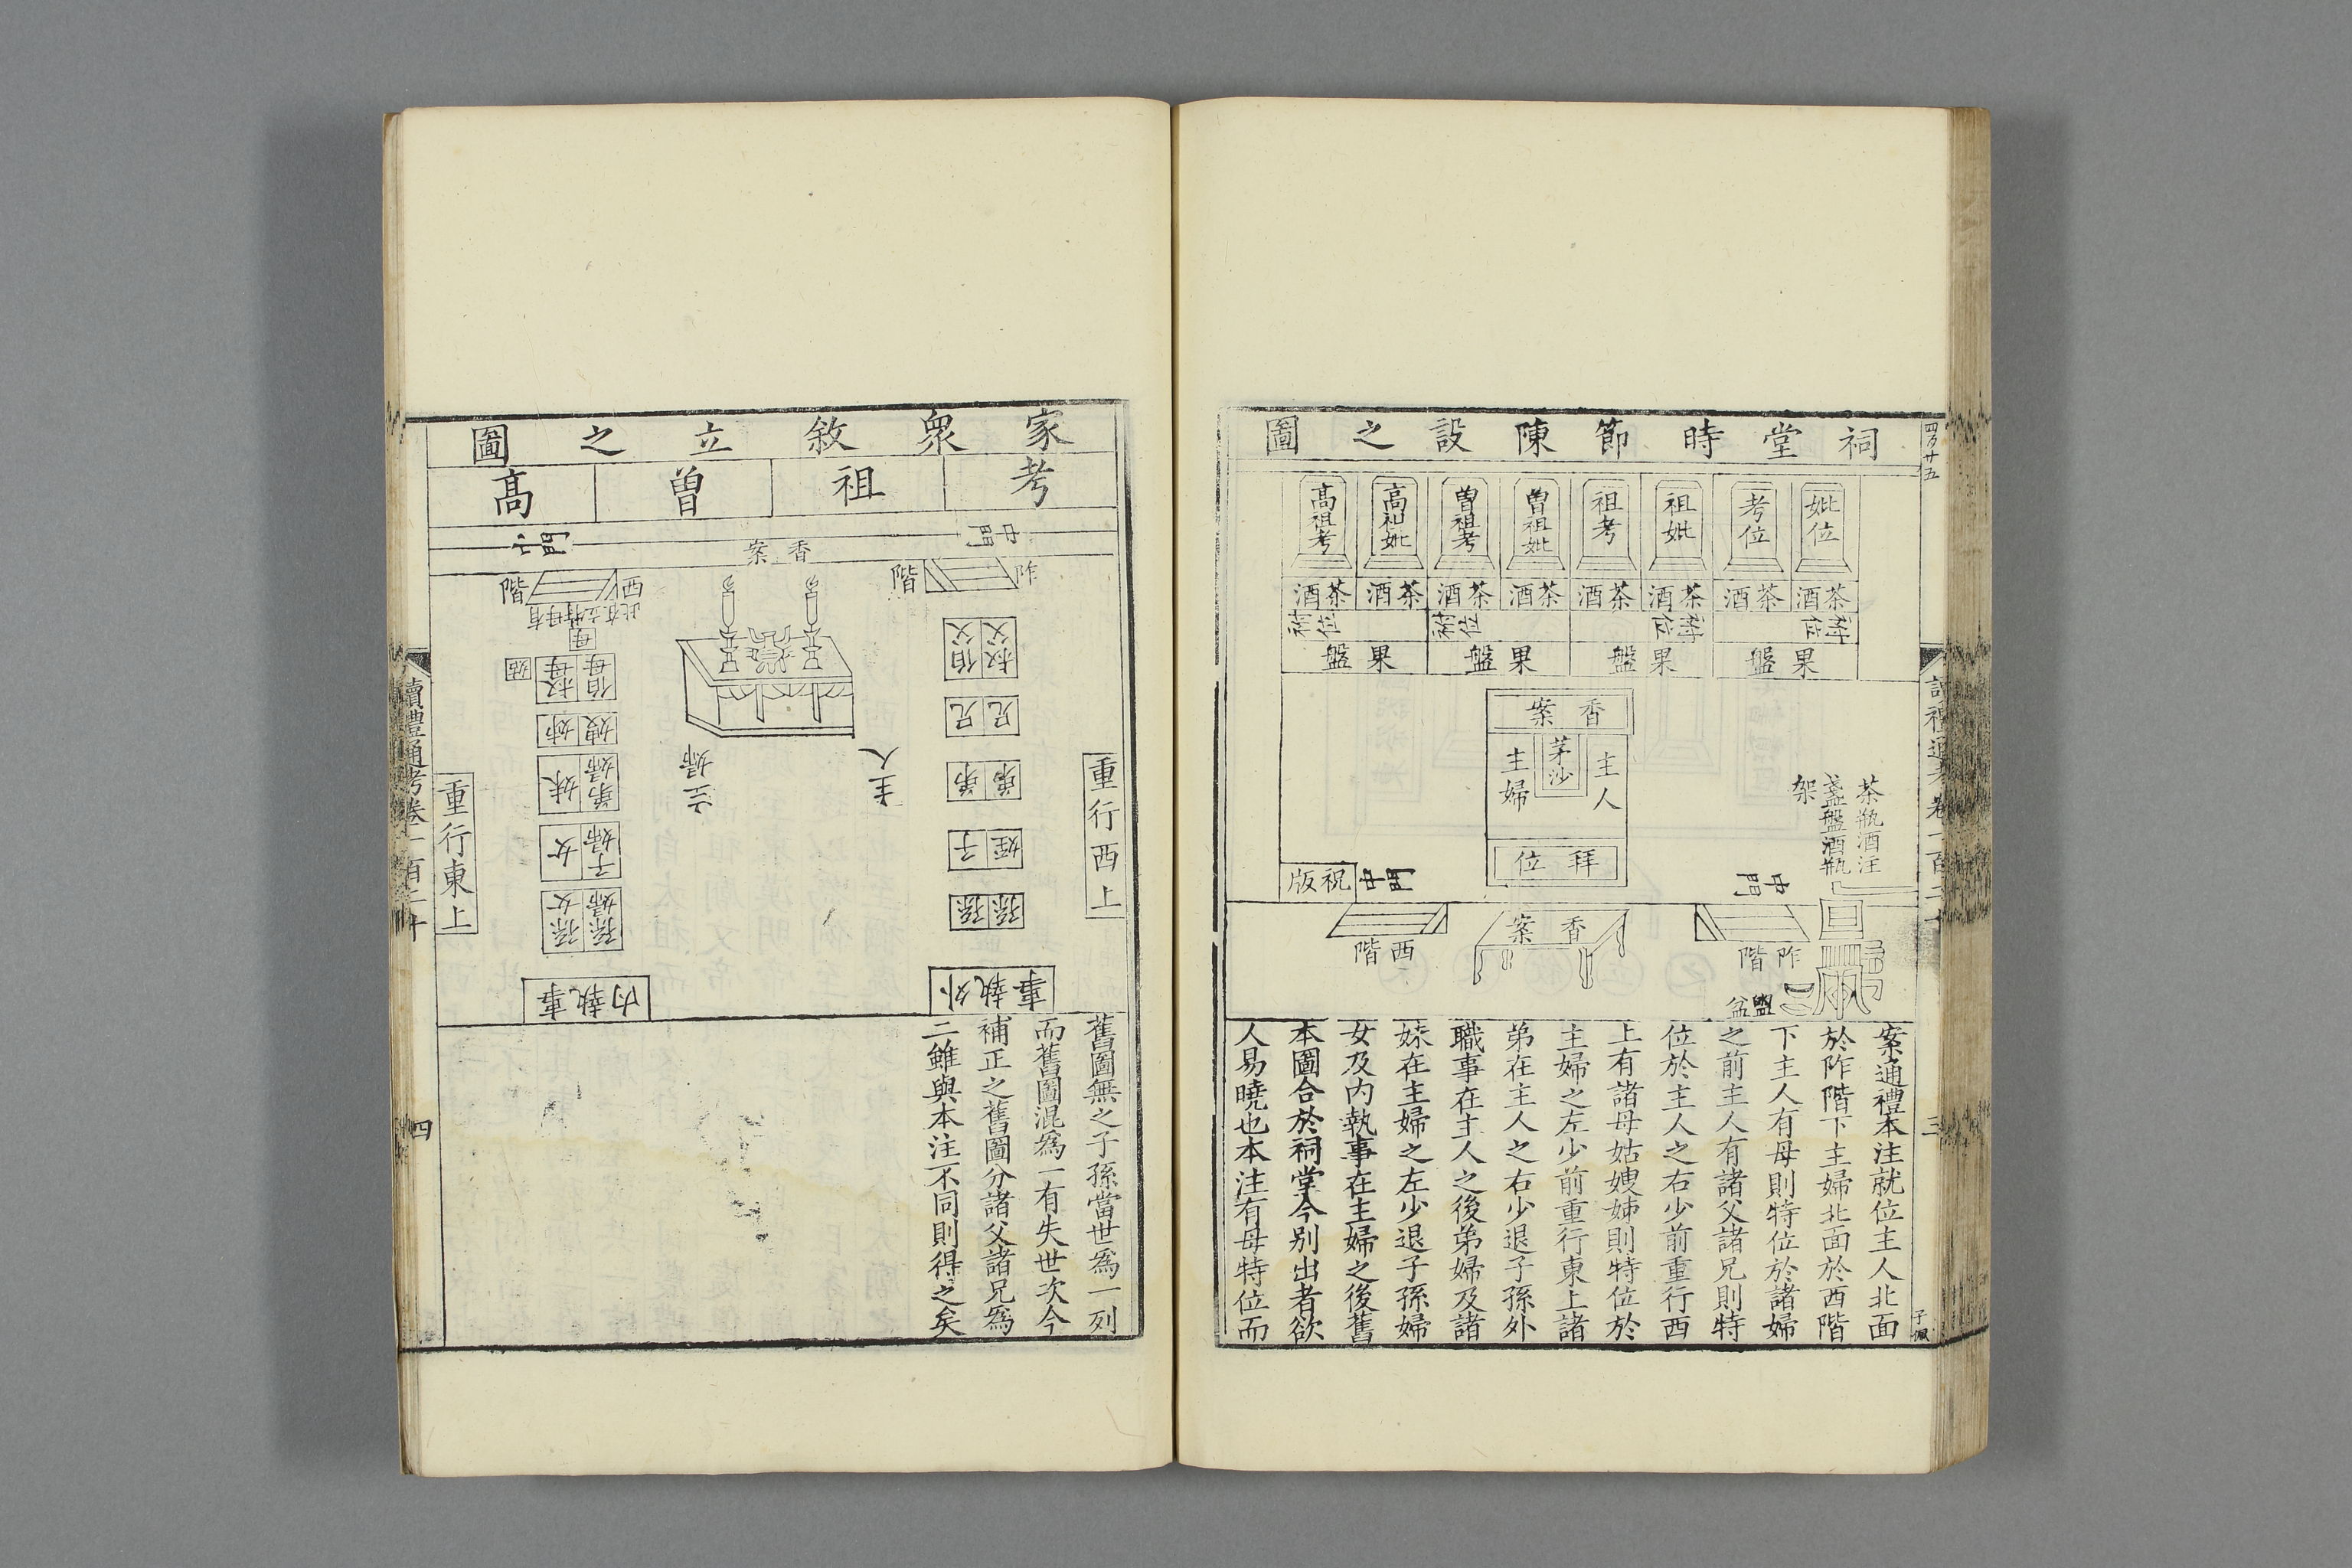 祠堂時節陳設之圖
妣位
考位
祖妣
祖考
曾祖妣
曾祖考
高祖妣
高祖考
茶酒
茶酒
茶酒
茶酒
茶酒
茶酒
茶酒
茶酒
祔位
祔位
祔位
祔位
果盤
果盤
果盤
果盤
香案
主人
茅沙
主婦
拜位
祝版
中門
中門
茶瓶酒注
盞盤酒瓶
架
阼階
香案
西階
盥盆
案通禮本注就位主人北面
於阼階下主婦北面於西階
下主人有母則特位於諸婦
之前主人有諸父諸兄則特
位於主人之右少前重行西
上有諸母姑嫂姊則特位於
主婦之左少前重行東上諸
弟在主人之右少退子孫外
職事在主人之後弟婦及諸
妹在主婦之左少退子孫婦
女及内執事在主婦之後舊
本圖合於祠堂今别出者欲
人易曉也本注有母特位而
四百廿五
三
子佩
家衆敘立之圖
考
祖
曾
高
中門
中門
香案
阼階
西階
有母特立在此
母
叔父
伯父
兄
兄
弟
弟
姪
子
孫
孫
外執事
重行西上
主人
主婦
伯母
叔母
姑
嫂
姊
弟婦
妹
子婦
女
孫婦
孫女
内執事
重行東上
舊圖無之子孫當世爲一列
而舊圖混爲一有失世次今
補正之舊圖分諸父諸兄爲
二雖與本注不同則得之矣
讀禮通考卷一百二十
四